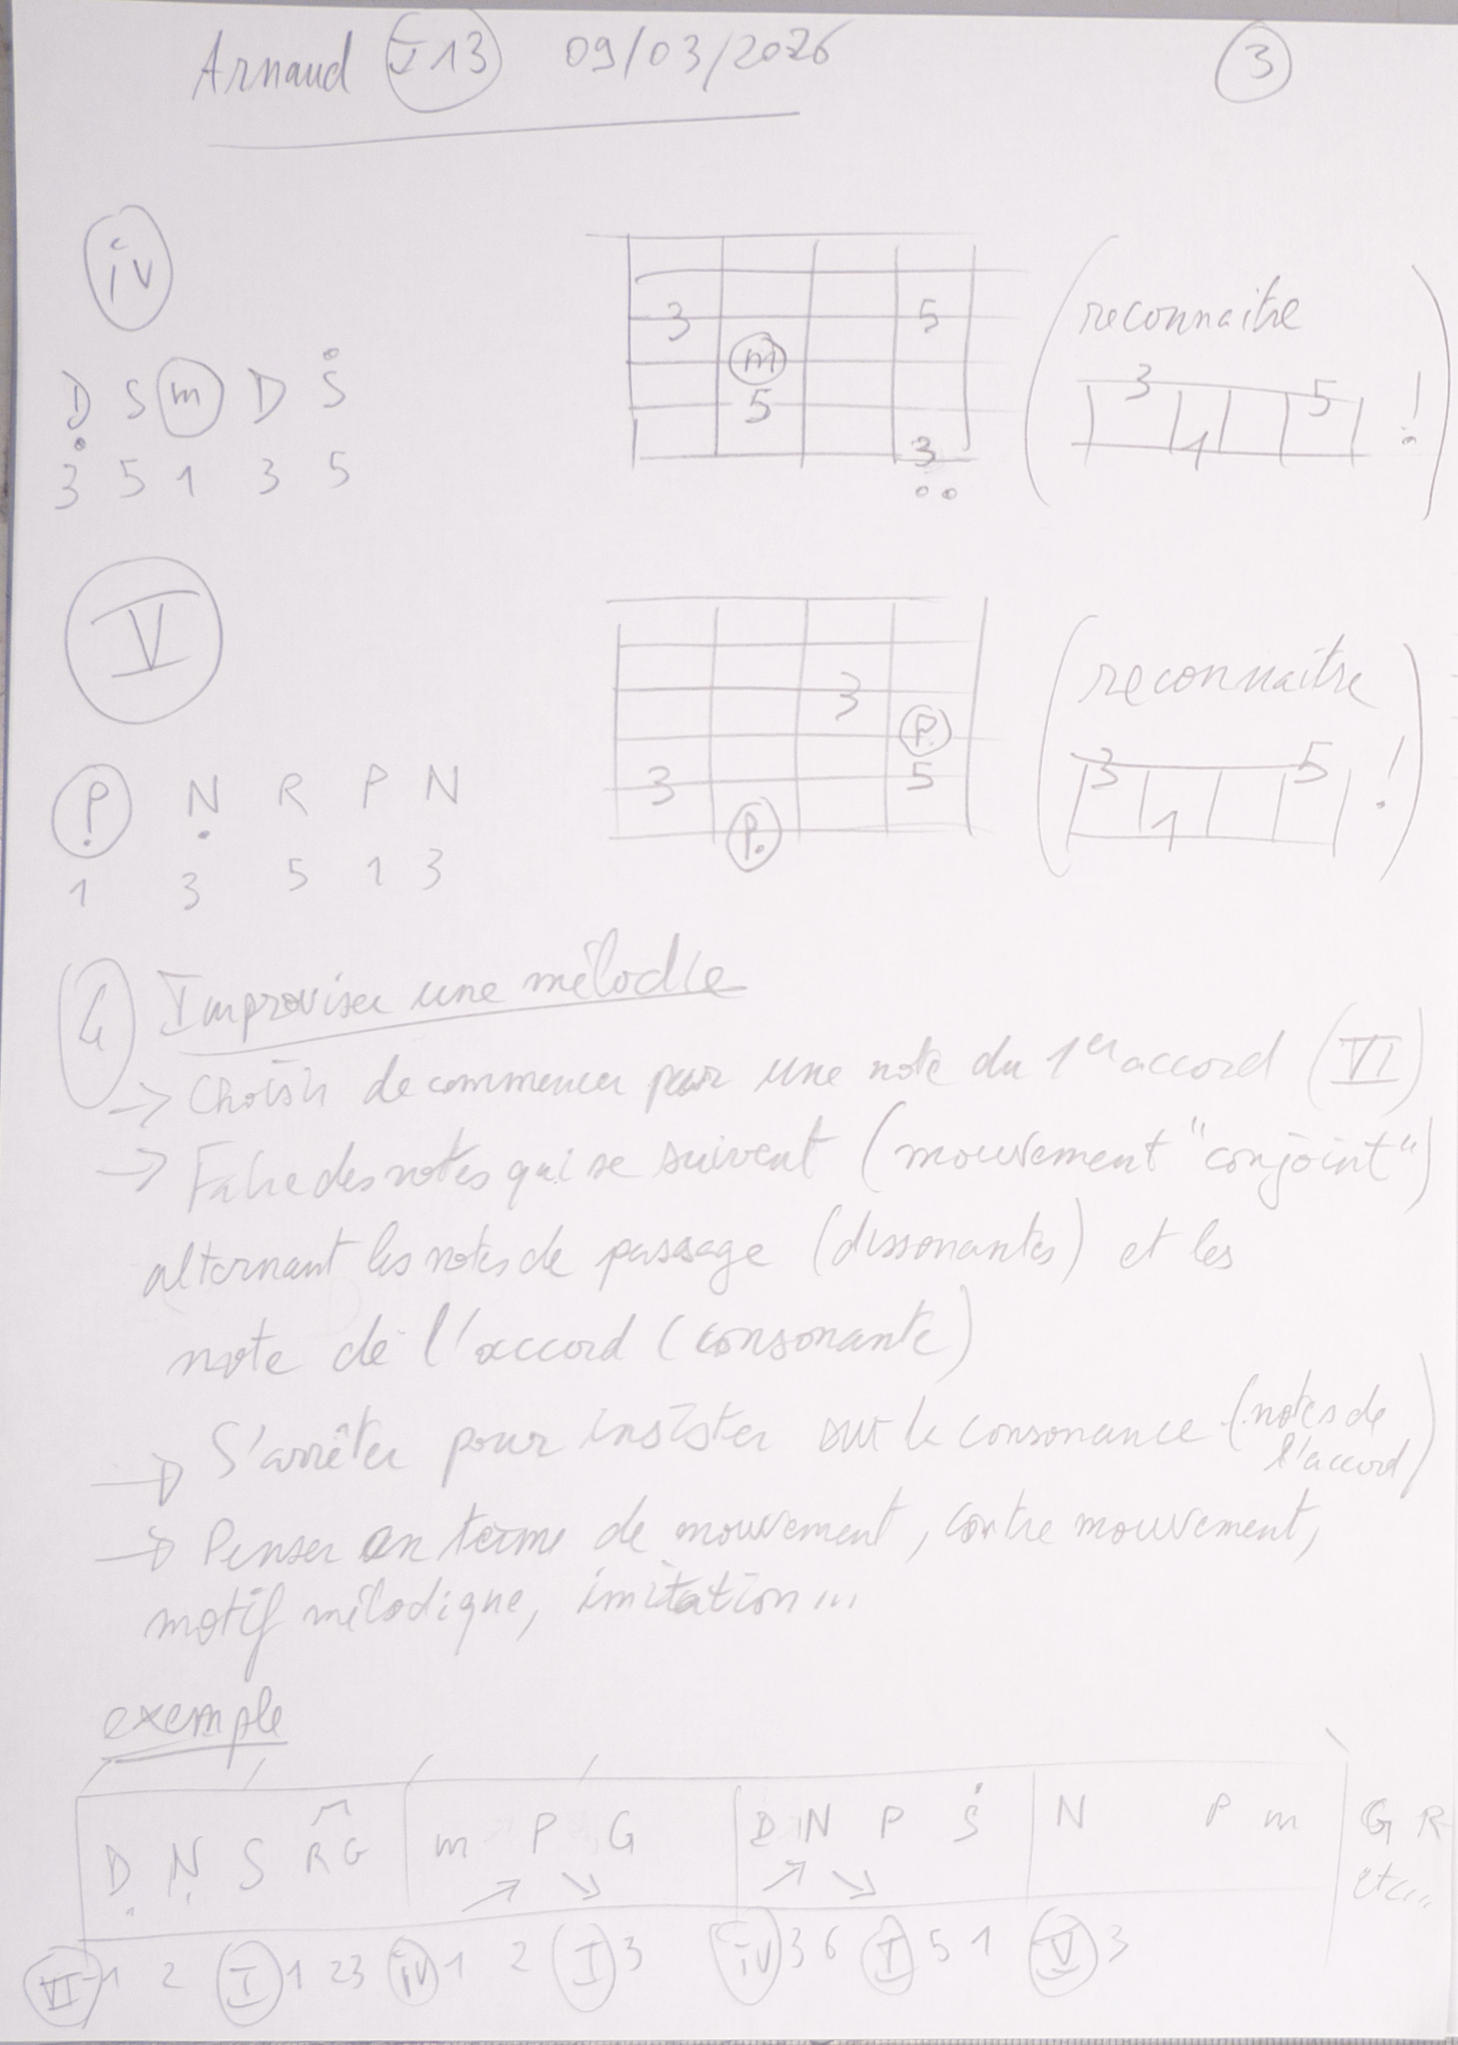 Arnaud I13 09/03/2026 3
iv
D S m D S
3 5 1 3 5
3 5
m
5
3
(reconnaitre
3 5
1 ! )
V
P N R P N
1 3 5 1 3
3
P
3 5
P
(reconnaitre
3 5
1 ! )
4 Improviser une mélodie
→ Choisir de commencer par une note du 1er accord (VI)
→ Faire des notes qui se suivent (mouvement "conjoint")
alternant les notes de passage (dissonantes) et les
note de l'accord (consonante)
→ S'arrêter pour insister sur la consonance (notes de
l'accord)
→ Penser en terme de mouvement, contre mouvement,
motif mélodique, imitation...
exemple
D N S R G m P G D N P S N P m G R
etc...
VI 1 2 I 1 23 iv 1 2 I 3 iv 3 6 I 5 1 V 3